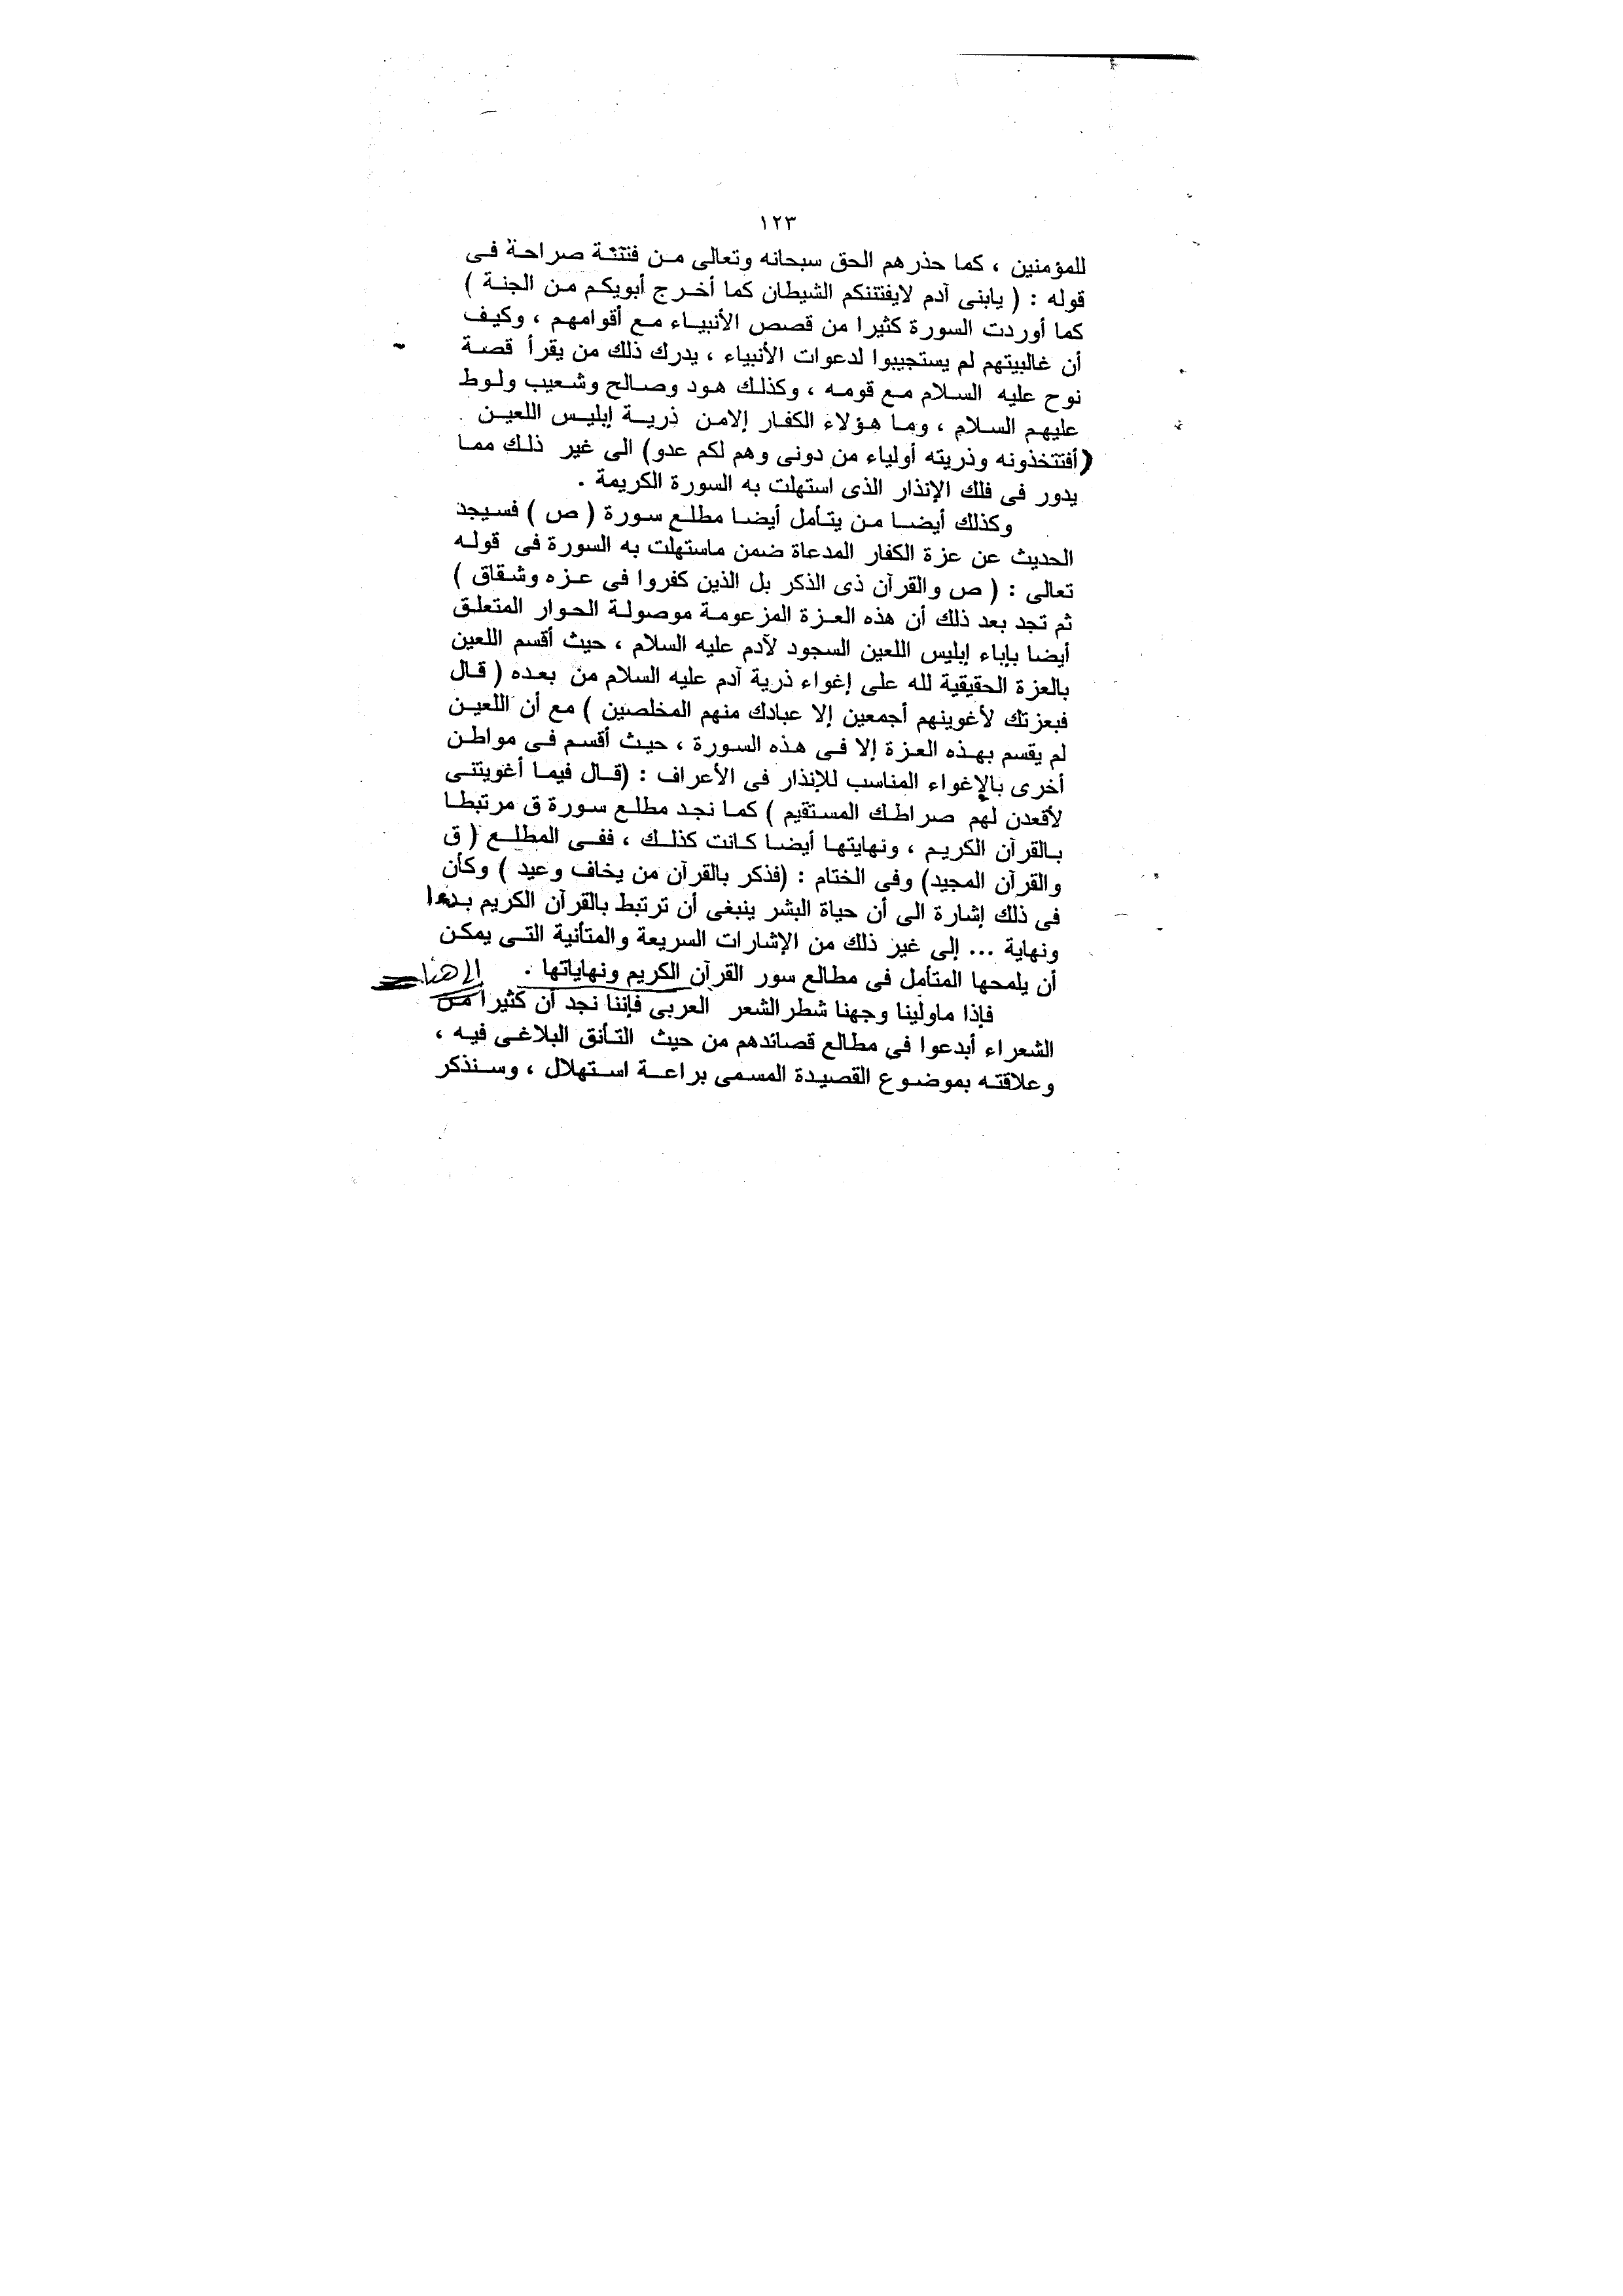 ١٢٣
للمؤمنين ، كما حذرهم الحق سبحانه وتعالى من فتنتة صراحة فى
قوله : ( يابنى آدم لايفتننكم الشيطان كما أخرج أبويكم من الجنة )
كما أوردت السورة كثيرا من قصص الأنبياء مع أقوامهم ، وكيف
أن غالبيتهم لم يستجيبوا لدعوات الأنبياء ، يدرك ذلك من يقرأ قصة
نوح عليه السلام مع قومه ، وكذلك هود وصالح وشعيب ولوط
عليهم السلام ، وما هؤلاء الكفار إلامن ذرية إبليس اللعين
(أفتتخذونه وذريته أولياء من دونى وهم لكم عدو) الى غير ذلك مما
يدور فى فلك الإنذار الذى استهلت به السورة الكريمة .
وكذلك أيضا من يتأمل أيضا مطلع سورة ( ص ) فسيجد
الحديث عن عزة الكفار المدعاة ضمن ماستهلت به السورة فى قوله
تعالى : ( ص والقرآن ذى الذكر بل الذين كفروا فى عزه وشقاق )
ثم تجد بعد ذلك أن هذه العزة المزعومة موصولة الحوار المتعلق
أيضا بإباء إبليس اللعين السجود لآدم عليه السلام ، حيث أقسم اللعين
بالعزة الحقيقية لله على إغواء ذرية آدم عليه السلام من بعده ( قال
فبعزتك لأغوينهم أجمعين إلا عبادك منهم المخلصين ) مع أن اللعين
لم يقسم بهذه العزة إلا فى هذه السورة ، حيث أقسم فى مواطن
أخرى بالإغواء المناسب للإنذار فى الأعراف : (قال فيما أغويتنى
لأقعدن لهم صراطك المستقيم ) كما نجد مطلع سورة ق مرتبطا
بالقرآن الكريم ، ونهايتها أيضا كانت كذلك ، ففى المطلع ( ق
والقرآن المجيد) وفى الختام : (فذكر بالقرآن من يخاف وعيد ) وكأن
فى ذلك إشارة الى أن حياة البشر ينبغى أن ترتبط بالقرآن الكريم بدءا
ونهاية ... إلى غير ذلك من الإشارات السريعة والمتأنية التى يمكن
أن يلمحها المتأمل فى مطالع سور القرآن الكريم ونهاياتها . إلى هنا
فإذا ماولينا وجهنا شطر الشعر العربى فإننا نجد أن كثيرا من
الشعراء أبدعوا فى مطالع قصائدهم من حيث التأنق البلاغى فيه ،
وعلاقته بموضوع القصيدة المسمى براعة استهلال ، وسنذكر